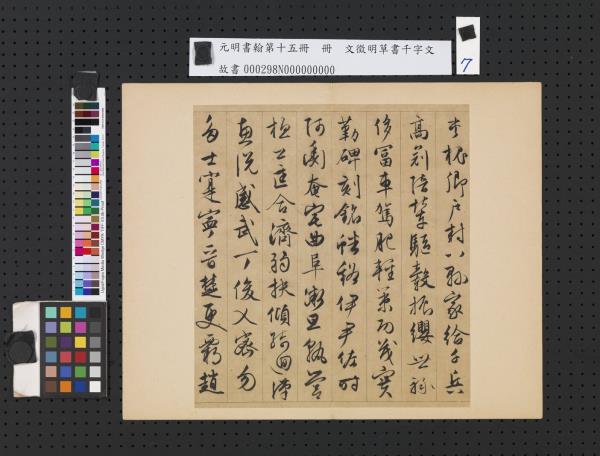 元明書翰第十五冊 冊 文徵明草書千字文
故書 000298N000000000
7
槐卿戶封八縣家給千兵
高冠陪輦驅轂振纓世祿
侈富車駕肥輕策功茂實
勒碑刻銘磻溪伊尹佐時
阿衡奄宅曲阜微旦孰營
桓公匡合濟弱扶傾綺迴漢
惠說感武丁俊乂密勿
多士寔寧晉楚更霸趙